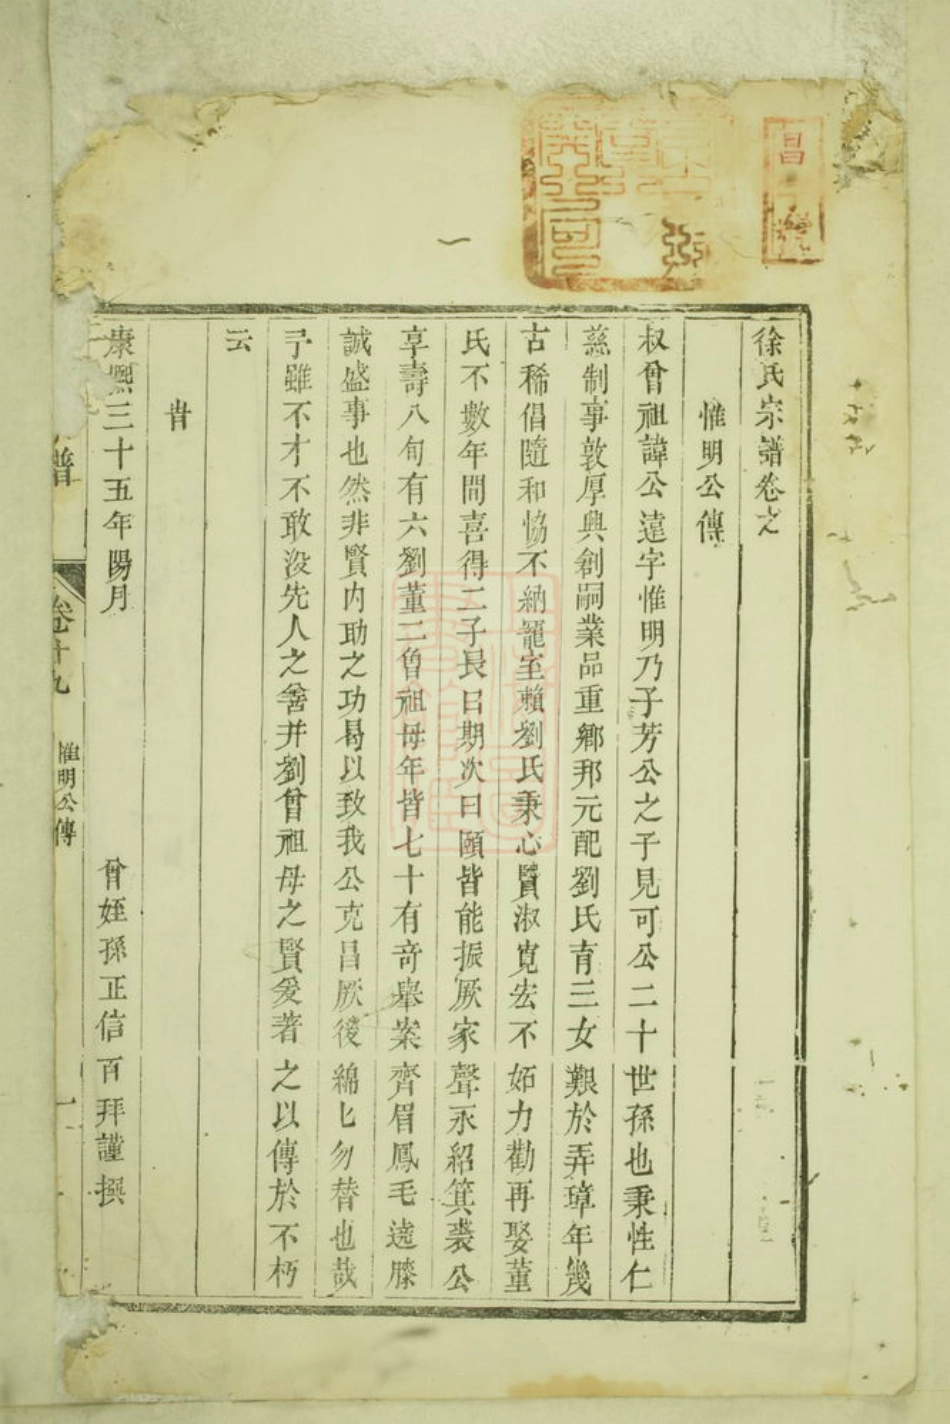 徐氏宗譜卷之
惟明公傳
叔曾祖諱公遠字惟明乃子芳公之子見可公二十世孫也秉性仁
慈制事敦厚興創嗣業品重鄉邦元配劉氏育三女艱於弄璋年幾
古稀倡隨和恊不納寵室賴劉氏秉心賢淑寬宏不妬力勸再娶董
氏不數年間喜得二子長曰期次曰頤皆能振厥家聲永紹箕裘公
享壽八旬有六劉董二曾祖母年皆七十有奇舉案齊眉鳳毛遶膝
誠盛事也然非賢内助之功曷以致我公克昌厥後綿匕勿替也哉
予雖不才不敢没先人之善并劉曾祖母之賢爰著之以傳於不朽
云
旹
康熙三十五年陽月
曾姪孫正信百拜謹撰
譜
卷十九
惟明公傳
一